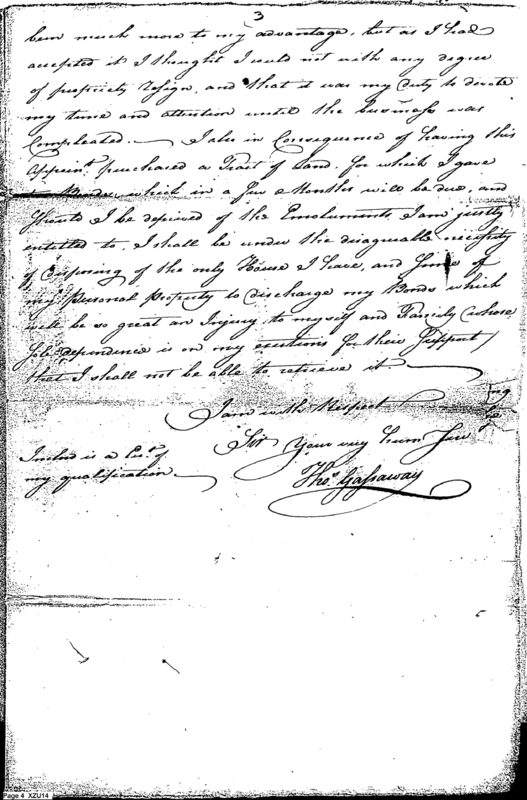 3
been much more to my advantage, but as I had
accepted it I thought I could not with any degree
of propriety resign, and that it was my duty to devote
my time and attention until the business was
Compleated. — I also in Consequence of having this
Appointt purchased a Tract of Land, for which I gave
Bonds, which in a few Months will be due, and
Should I be deprived of the Emoluments I am justly
entitled to, I shall be under the disagreeable necessity
of disposing of the only House I have, and some of
my Personal Property to discharge my Bonds which
will be so great an Injury to myself and Family (whose
Sole dependence is on my exertions for their Support)
that I shall not be able to retrieve it. —
I am with Respect
Sir Your very hum Ser
Thos. Gassaway
Inclosd is a of
my qualification —
Page 4 XZU14